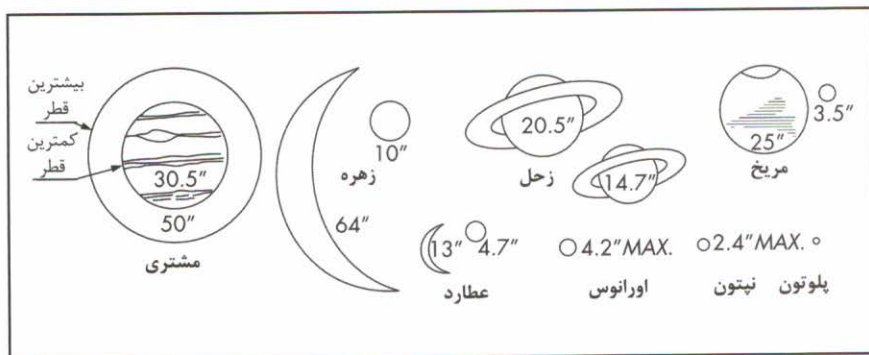 بیشترین
قطر
کمترین
قطر
30.5″
50″
مشتری
10″
زهره
64″
20.5″
زحل
14.7″
25″
3.5″
مریخ
13″
4.7″
عطارد
4.2″MAX.
اورانوس
2.4″MAX.
نپتون
پلوتون